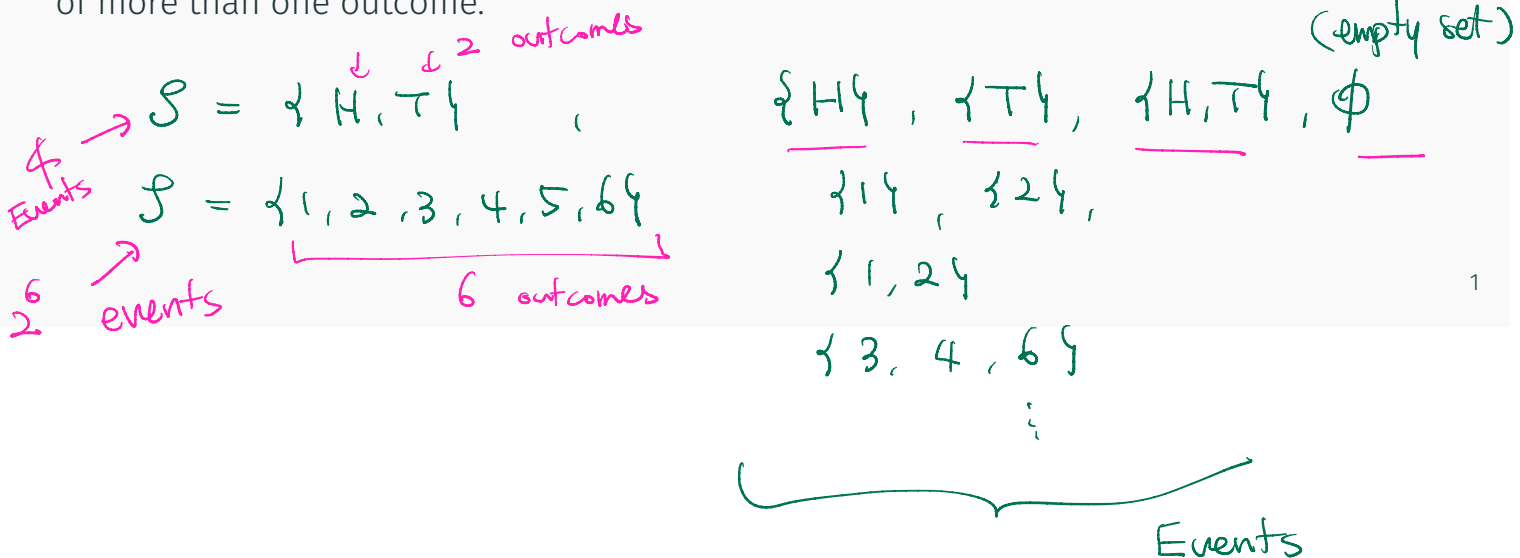 of more than one outcome.
(empty set)
2 outcomes
S = { H, T } , {H} , {T}, {H,T} , ϕ
4 Events
S = {1, 2, 3, 4, 5, 6} {1} , {2},
2^6 events
6 outcomes
{1, 2}
1
{3, 4, 6}
⋮
Events